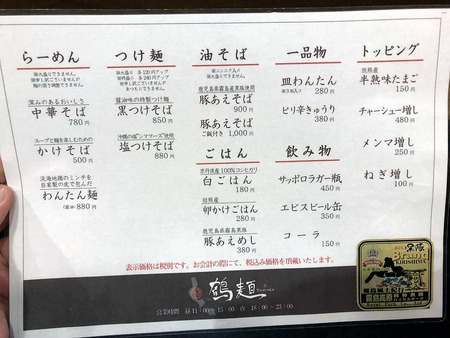 らーめん
※大盛りできません。
深みのあるおいしさ
中華そば
780円
スープと麺を楽しむための
かけそば
500円
淡海地鶏のミンチを
自家製の皮で包んだ
わんたん麺
880円
つけ麺
醤油味の特製つけ麺
黒つけそば
850円
沖縄の塩"シママース"使用
塩つけそば
880円
油そば
鹿児島県霧島産黒豚使用
豚あえそば
900円
豚あえそば
ご飯付き 1,000円
ごはん
京丹後産100%コシヒカリ
白ごはん
180円
但熊産
卵かけごはん
280円
鹿児島県霧島黒豚
豚あえめし
380円
一品物
皿わんたん
280円
ピリ辛きゅうり
380円
飲み物
サッポロラガー瓶
450円
エビスビール缶
350円
コーラ
150円
トッピング
但熊産
半熟味たまご
150円
チャーシュー増し
480円
メンマ増し
250円
ねぎ増し
100円
表示価格は税別です。お会計の際にて、税込み価格を頂戴いたします。
鶴麺
TSURUMEN
営業時間 昼11:00~15:00 夜18:00~23:00
Brand
KIRISHIMA